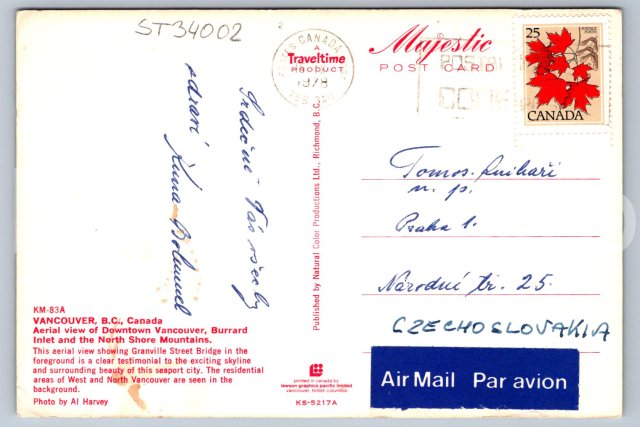 ST34002
CANADA
1978
A
Traveltime
PRODUCT
Majestic
POST CARD
25
CANADA
Srdečně Vás všechny
zdraví
Anna Bohumil
Published by Natural Color Productions Ltd., Richmond, B.C.
Tomos. knihaři
n. p.
Praha 1.
Národní tř. 25.
CZECHOSLOVAKIA
Air Mail Par avion
KM-83A
VANCOUVER, B.C., Canada
Aerial view of Downtown Vancouver, Burrard
Inlet and the North Shore Mountains.
This aerial view showing Granville Street Bridge in the
foreground is a clear testimonial to the exciting skyline
and surrounding beauty of this seaport city. The residential
areas of West and North Vancouver are seen in the
background.
Photo by Al Harvey
printed in canada by
lawson graphics pacific limited
vancouver, british columbia
KS-5217A